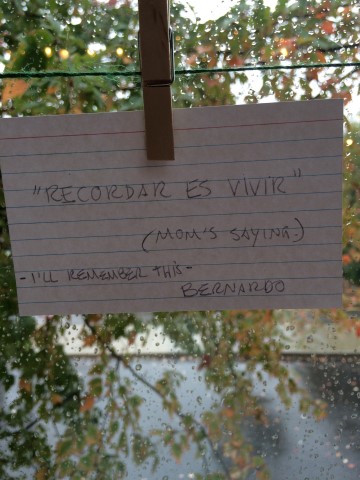 "RECORDAR ES VIVIR"
(MOM'S SAYING.)
- I'LL REMEMBER THIS -
BERNARDO